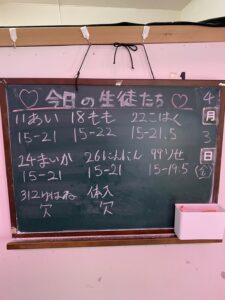 ♡ 今日の生徒たち ♡
11あい 18もも 22こはく
15-21 15-22 15-21.5
24まいか 26にんにん 99りせ
15-21 15-21 15-19.5
312りはね 体入
欠 欠
4
月
3
日
(金)